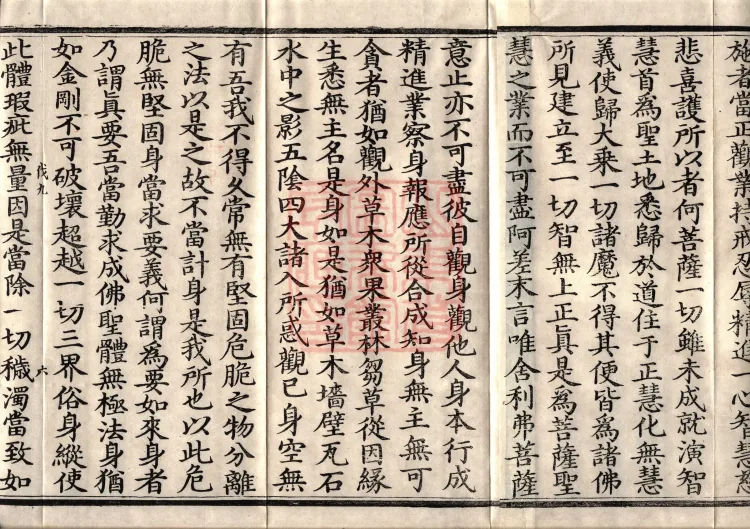 施者當正觀業持戒忍辱精進一心智慧慈
悲喜護所以者何菩薩一切雖未成就演智
慧首為聖土地悉歸於道住于正慧化無慧
義使歸大乗一切諸魔不得其便皆為諸佛
所見建立至一切智無上正眞是為菩薩聖
慧之業而不可盡阿差末言唯舍利弗菩薩
意止亦不可盡彼自觀身觀他人身本行成
精進業察身報應所從合成知身無主無可
貪者猶如觀外草木衆果叢林芻草從因緣
生悉無主名是身如是猶如草木墻壁瓦石
水中之影五陰四大諸入所惑觀已身空無
有吾我不得久常無有堅固危脆之物分離
之法以是之故不當計身是我所也以此危
脆無堅固身當求要義何謂為要如來身者
乃謂眞要吾當勤求成佛聖體無極法身猶
如金剛不可破壞超越一切三界俗身縱使
伐九 六
此體瑕疵無量因是當除一切穢濁當致如